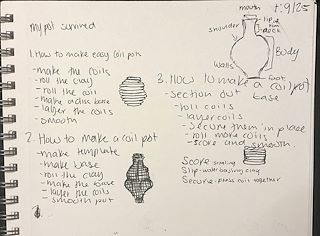 my pot survived
1. How to make easy coil pot
- make the coils
- roll the clay
- roll the coil
- make a disc base
- layer the coils
- smooth
2. How to make a coil pot
- make template
- make base
- roll the clay
- make the base
- layer the coils
- smooth pot
t: 9/25
mouth
shoulder
lip &
rim
neck
Body
Walls
foot
3. How to make a coil pot
- section out base
- roll coils
- layer coils
- secure them in place
- roll more coils
- score and smooth
Score
Slip- water clay
Secure- press coil together